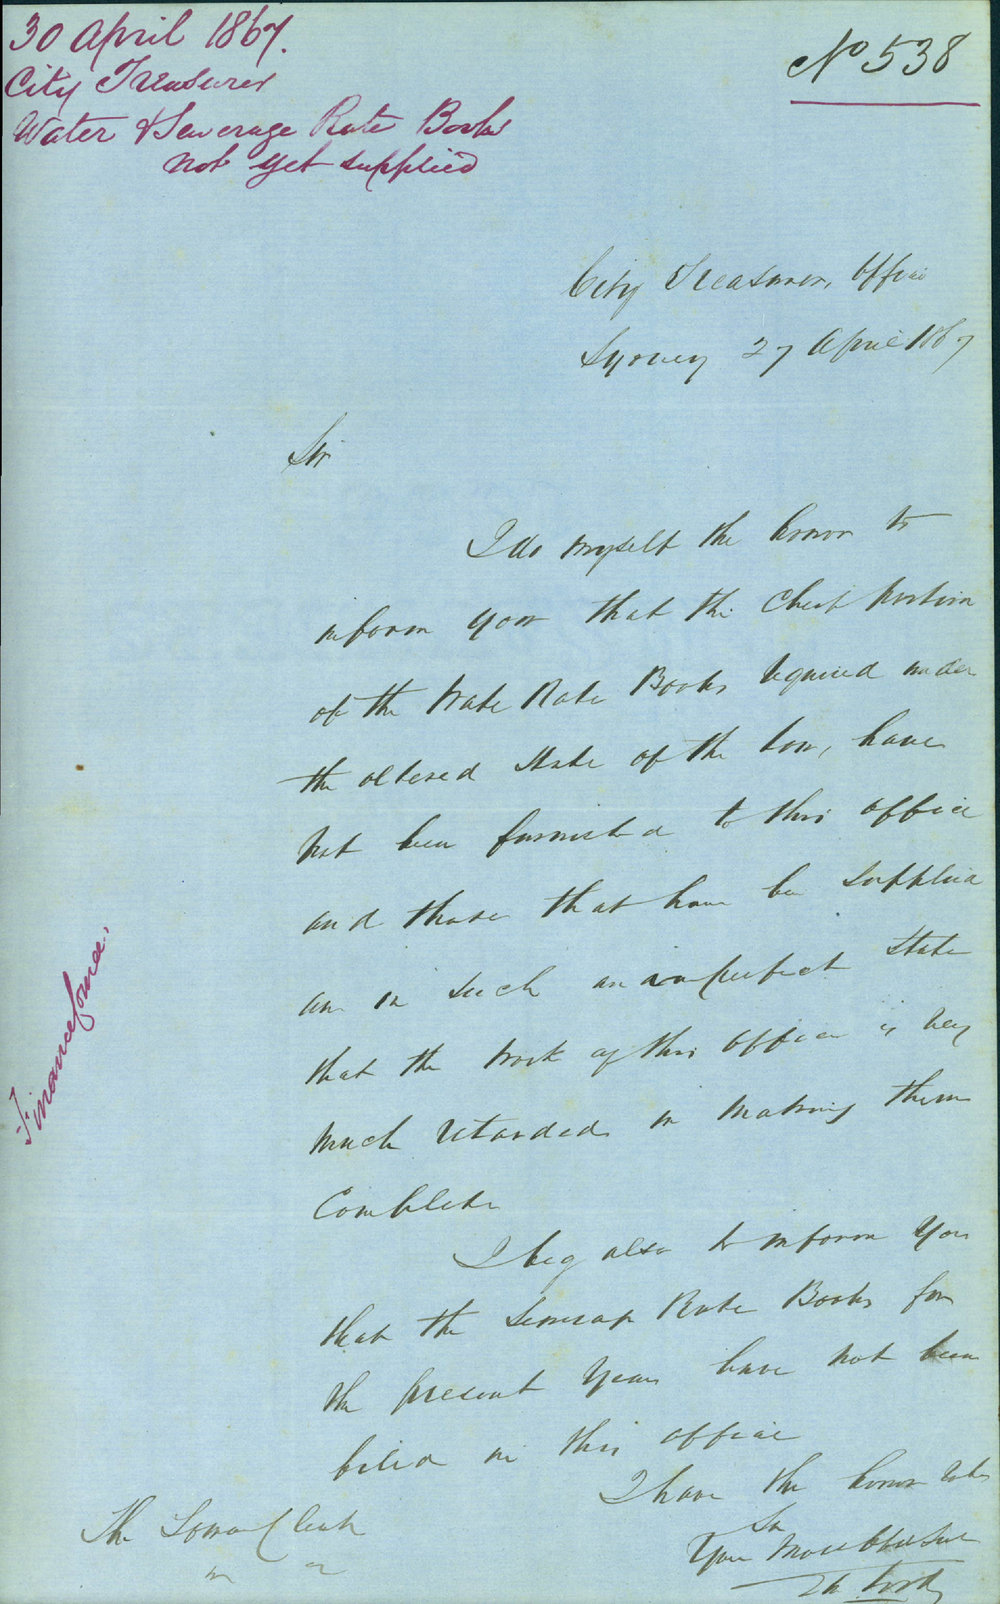 30 April 1867.
City Treasurer
Water & Sewerage Rate Books
not yet supplied
No 538
City Treasurers Office
Sydney 27 April 1867
Sir
I do myself the honor to
inform you that the Chief portion
of the Water Rate Books required under
the altered State of the law, have
not been furnished to this office
and those that have been supplied
are in such an imperfect State
that the work of this office is very
much retarded in making them
Complete
I beg also to inform you
that the Sewerage Rate Books for
the present year have not been
filed in this office
I have the honor to be
Sir
Your Most Obedt Servt
The Town Clerk